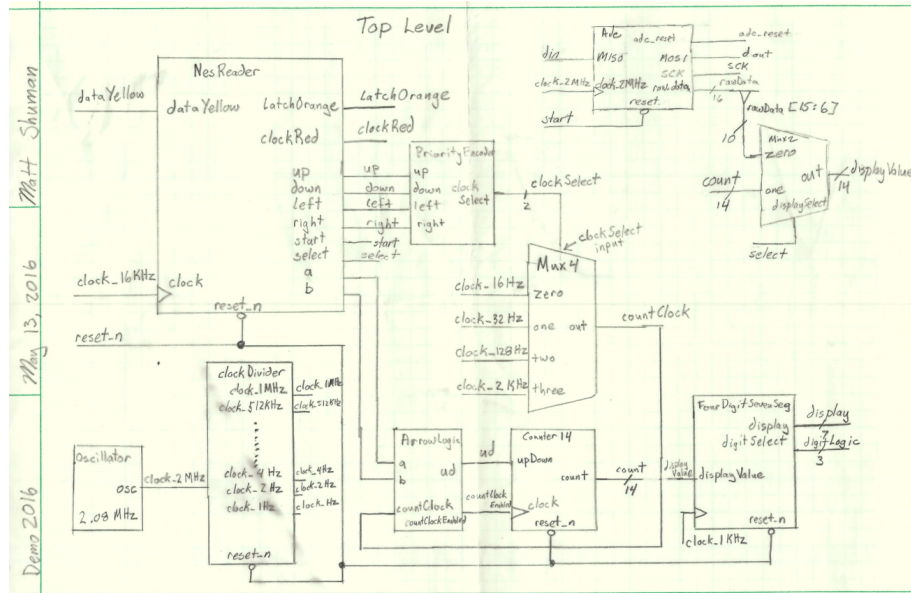 Top Level
Matt Shuman
May 13, 2016
Demo 2016
NesReader
dataYellow
dataYellow
LatchOrange
LatchOrange
clockRed
clockRed
up
up
down
down
left
left
right
right
start
start
select
select
a
b
clock_16KHz
clock
reset_n
reset_n
PriorityEncoder
up
down
left
right
clock
Select
clockSelect
2
clockSelect
input
Mux4
clock_16Hz
zero
clock_32Hz
one
out
clock_128Hz
two
clock_2KHz
three
countClock
Adc
adc_reset
adc_reset
din
MISO
MOSI
dout
clock_2MHz
clock_2MHz
SCK
SCK
rawdata
rawData
16
reset
start
rawData [15:6]
10
Mux2
zero
out
displayValue
14
count
14
one
displaySelect
select
clockDivider
clock_1MHz
clock_1MHz
clock_512KHz
clock_512KHz
clock_4Hz
clock_4Hz
clock_2Hz
clock_2Hz
clock_1Hz
clock_Hz
reset_n
Oscillator
osc
2.08 MHz
clock_2MHz
ArrowLogic
a
b
ud
ud
countClock
countClockEnabled
countClock
Enabled
Counter 14
upDown
count
clock
reset_n
count
14
FourDigitSevenSeg
display
display
7
digitSelect
digitLogic
3
display
Value
displayValue
reset_n
clock_1KHz